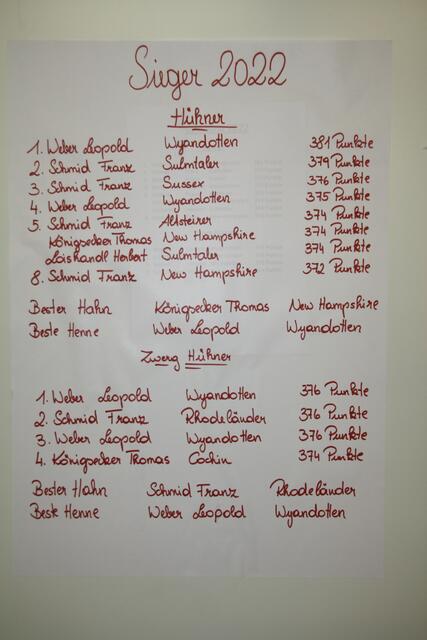 Sieger 2022
Hühner
1. Weber Leopold Wyandotten 381 Punkte
2. Schmid Franz Sulmtaler 379 Punkte
3. Schmid Franz Sussex 376 Punkte
4. Weber Leopold Wyandotten 375 Punkte
5. Schmid Franz Altsteirer 374 Punkte
Königsecker Thomas New Hampshire 374 Punkte
Loishandl Herbert Sulmtaler 374 Punkte
8. Schmid Franz New Hampshire 372 Punkte
Bester Hahn Königsecker Thomas New Hampshire
Beste Henne Weber Leopold Wyandotten
Zwerg Hühner
1. Weber Leopold Wyandotten 376 Punkte
2. Schmid Franz Rhodeländer 376 Punkte
3. Weber Leopold Wyandotten 376 Punkte
4. Königsecker Thomas Cochin 374 Punkte
Bester Hahn Schmid Franz Rhodeländer
Beste Henne Weber Leopold Wyandotten